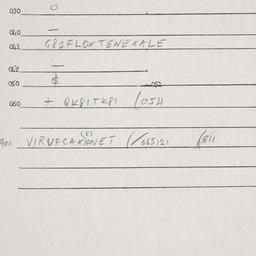 030 O
040 —
043 G82FLOXTENEKALE
048 —
050 $ 052
060 + QK81TK81 (054
900 VIRUFCAK(ES)ONET (/065121 (811